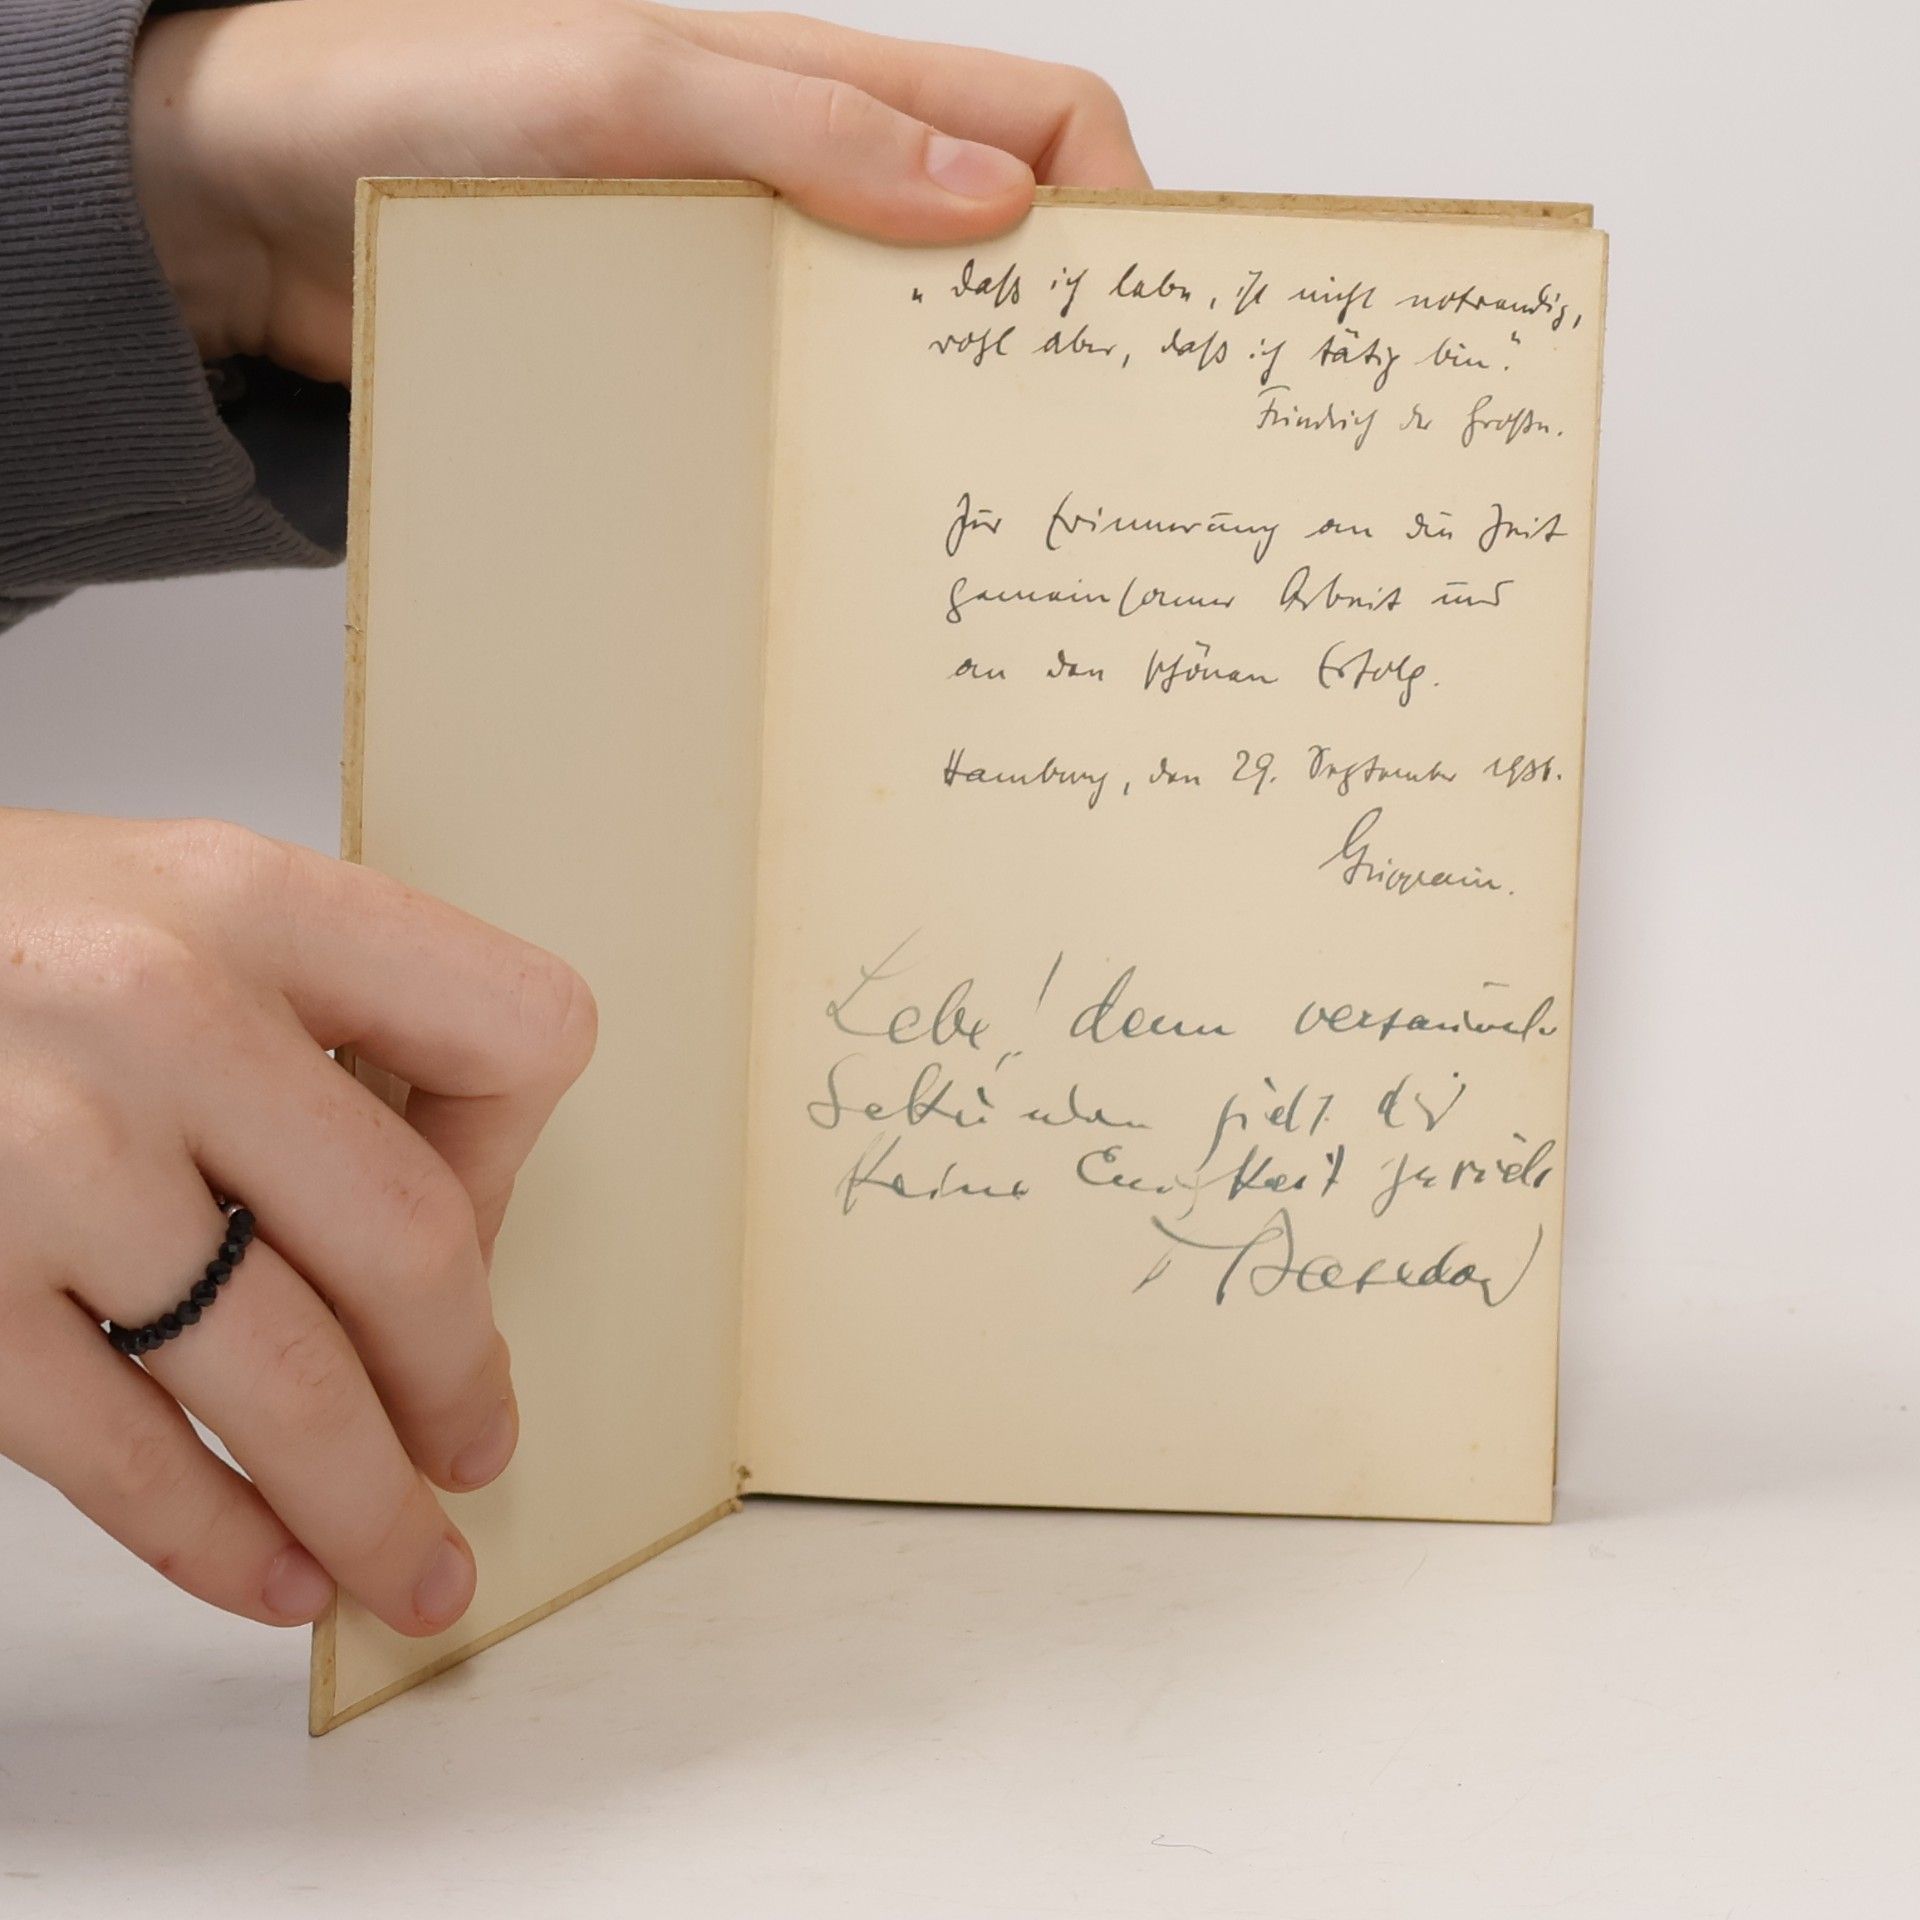 „Daß ich lebe, ist nicht notwendig,
wohl aber, daß ich tätig bin."
Friedrich der Große.
Zur Erinnerung an die Zeit
gemeinsamer Arbeit und
an den schönen Erfolg.
Hamburg, den 29. September 1936.
Lebe! denn versäumte
Sekunden giebt dir
keine Ewigkeit zurück